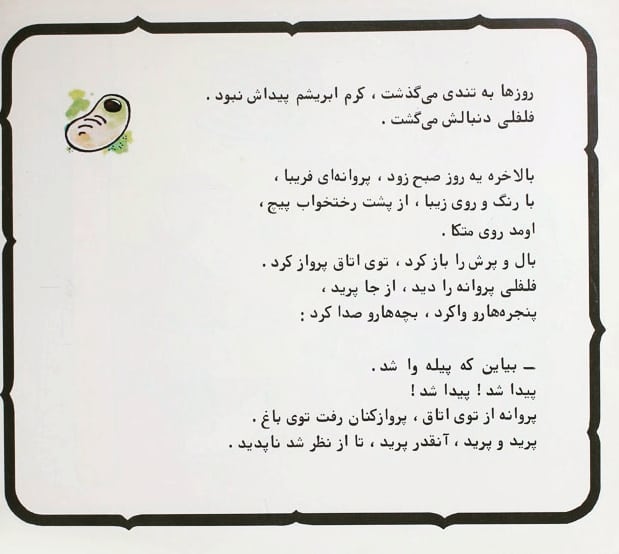 روزها به تندی می‌گذشت ، کرم ابریشم پیداش نبود .
فلفلی دنبالش می‌گشت .
بالاخره یه روز صبح زود ، پروانه‌ای فریبا ،
با رنگ و روی زیبا ، از پشت رختخواب پیچ ،
اومد روی متکا .
بال و پرش را باز کرد ، توی اتاق پرواز کرد .
فلفلی پروانه را دید ، از جا پرید ،
پنجره‌هارو واکرد ، بچه‌هارو صدا کرد :
ــ بیاین که پیله وا شد .
پیدا شد ! پیدا شد !
پروانه از توی اتاق ، پروازکنان رفت توی باغ .
پرید و پرید ، آنقدر پرید ، تا از نظر شد ناپدید .